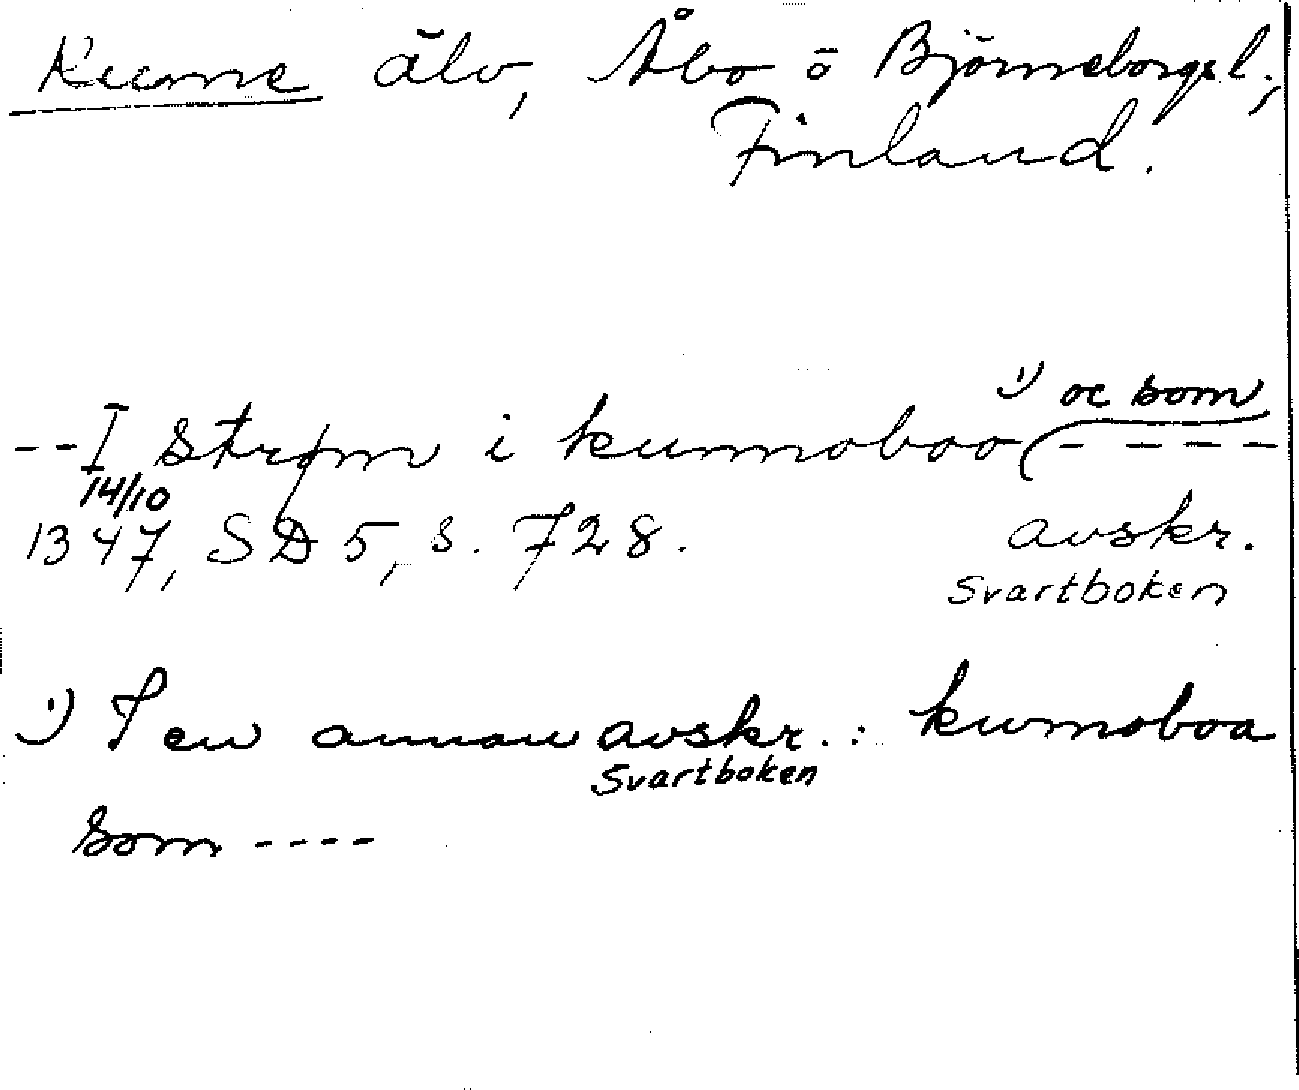 Kumo älv, Åbo o Björneborgs l.,
Finland.
¹) oc som
--I strøm i kumoboo ( - - - -
14/10
1347, SD 5, s. 728. avskr.
Svartboken
¹) I en annan avskr.: kumoboa
Svartboken
som ----